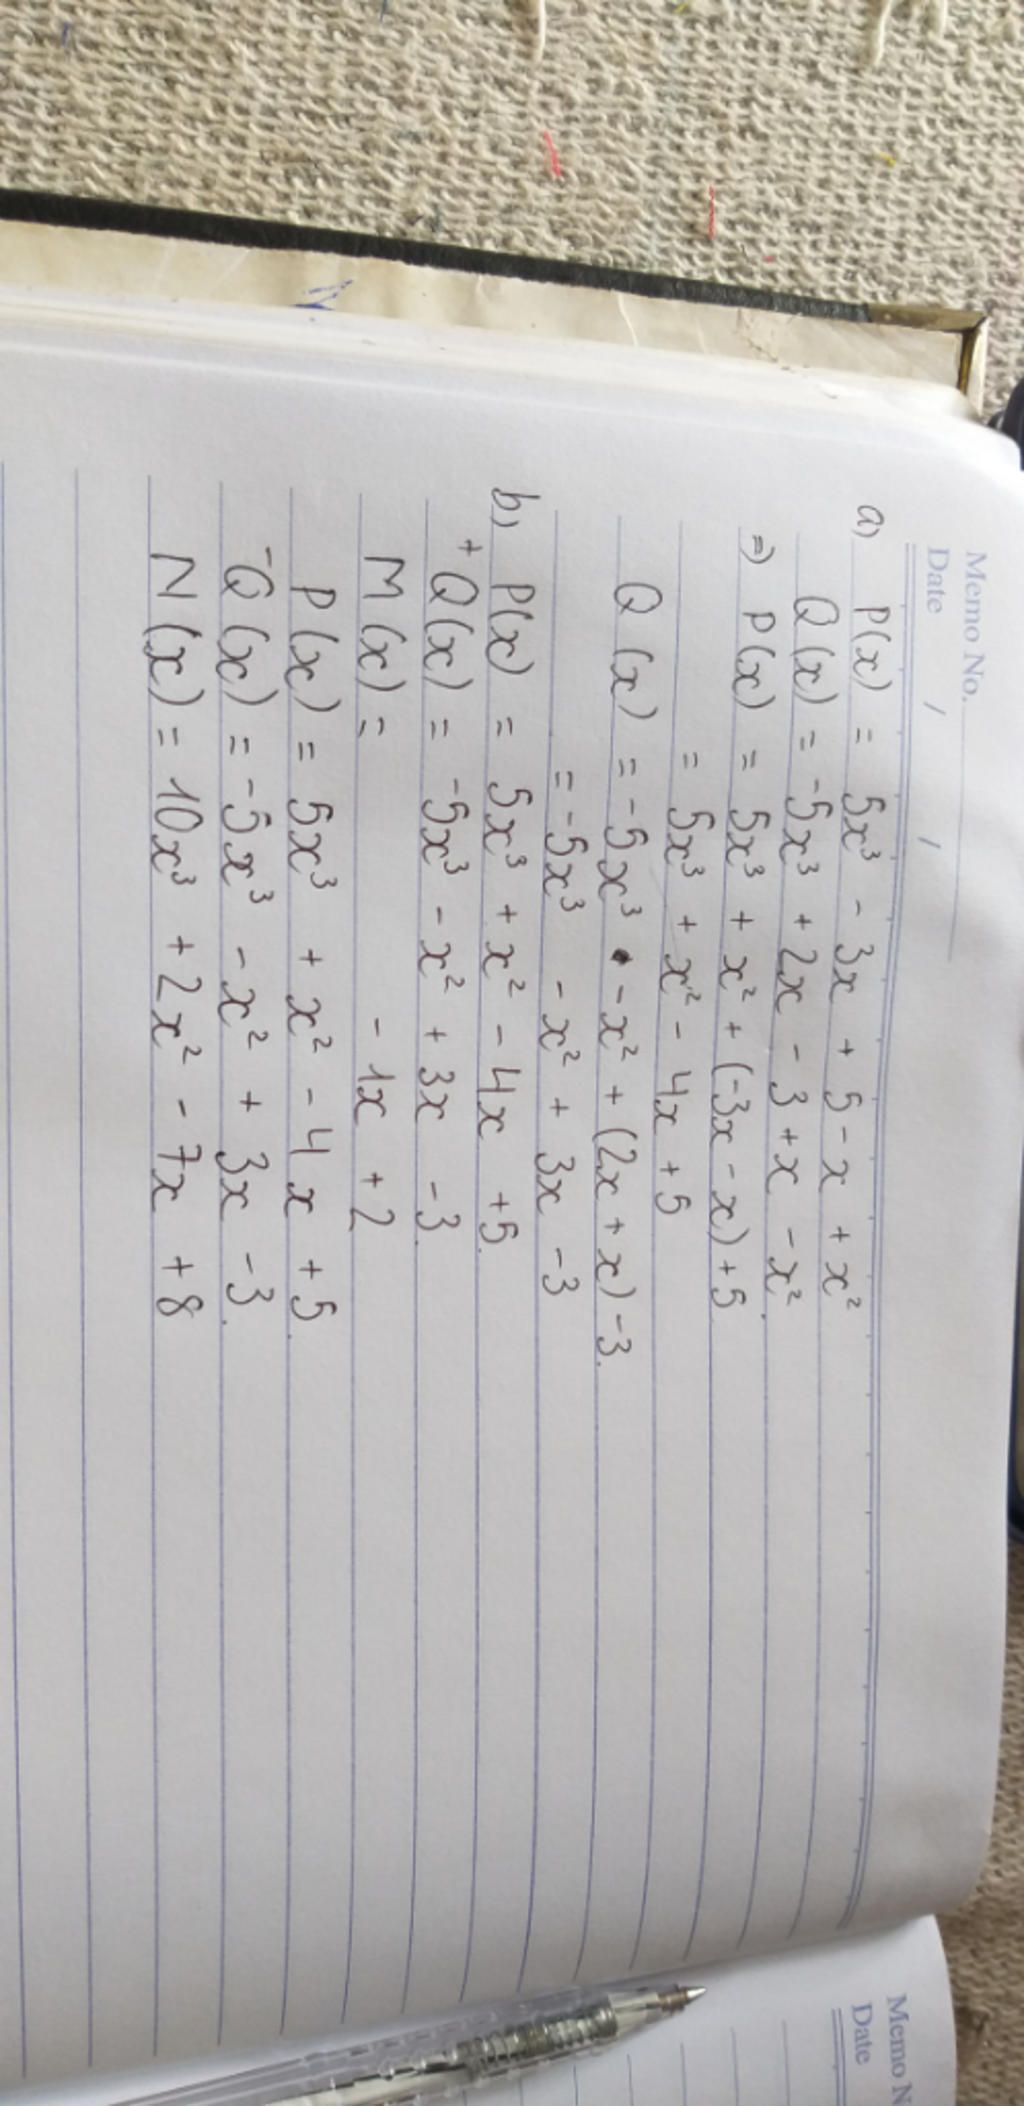 Memo No.
Date / /
a) P(x) = 5x³ - 3x + 5 - x + x²
Q(x) = -5x³ + 2x - 3 + x - x²
=> P(x) = 5x³ + x² + (-3x - x) + 5.
= 5x³ + x² - 4x + 5
Q(x) = -5x³ - x² + (2x + x) - 3.
= -5x³ - x² + 3x - 3
b, P(x) = 5x³ + x² - 4x + 5.
+ Q(x) = -5x³ - x² + 3x - 3.
M(x) = - 1x + 2
P(x) = 5x³ + x² - 4x + 5.
- Q(x) = -5x³ - x² + 3x - 3.
N(x) = 10x³ + 2x² - 7x + 8
Memo N
Date